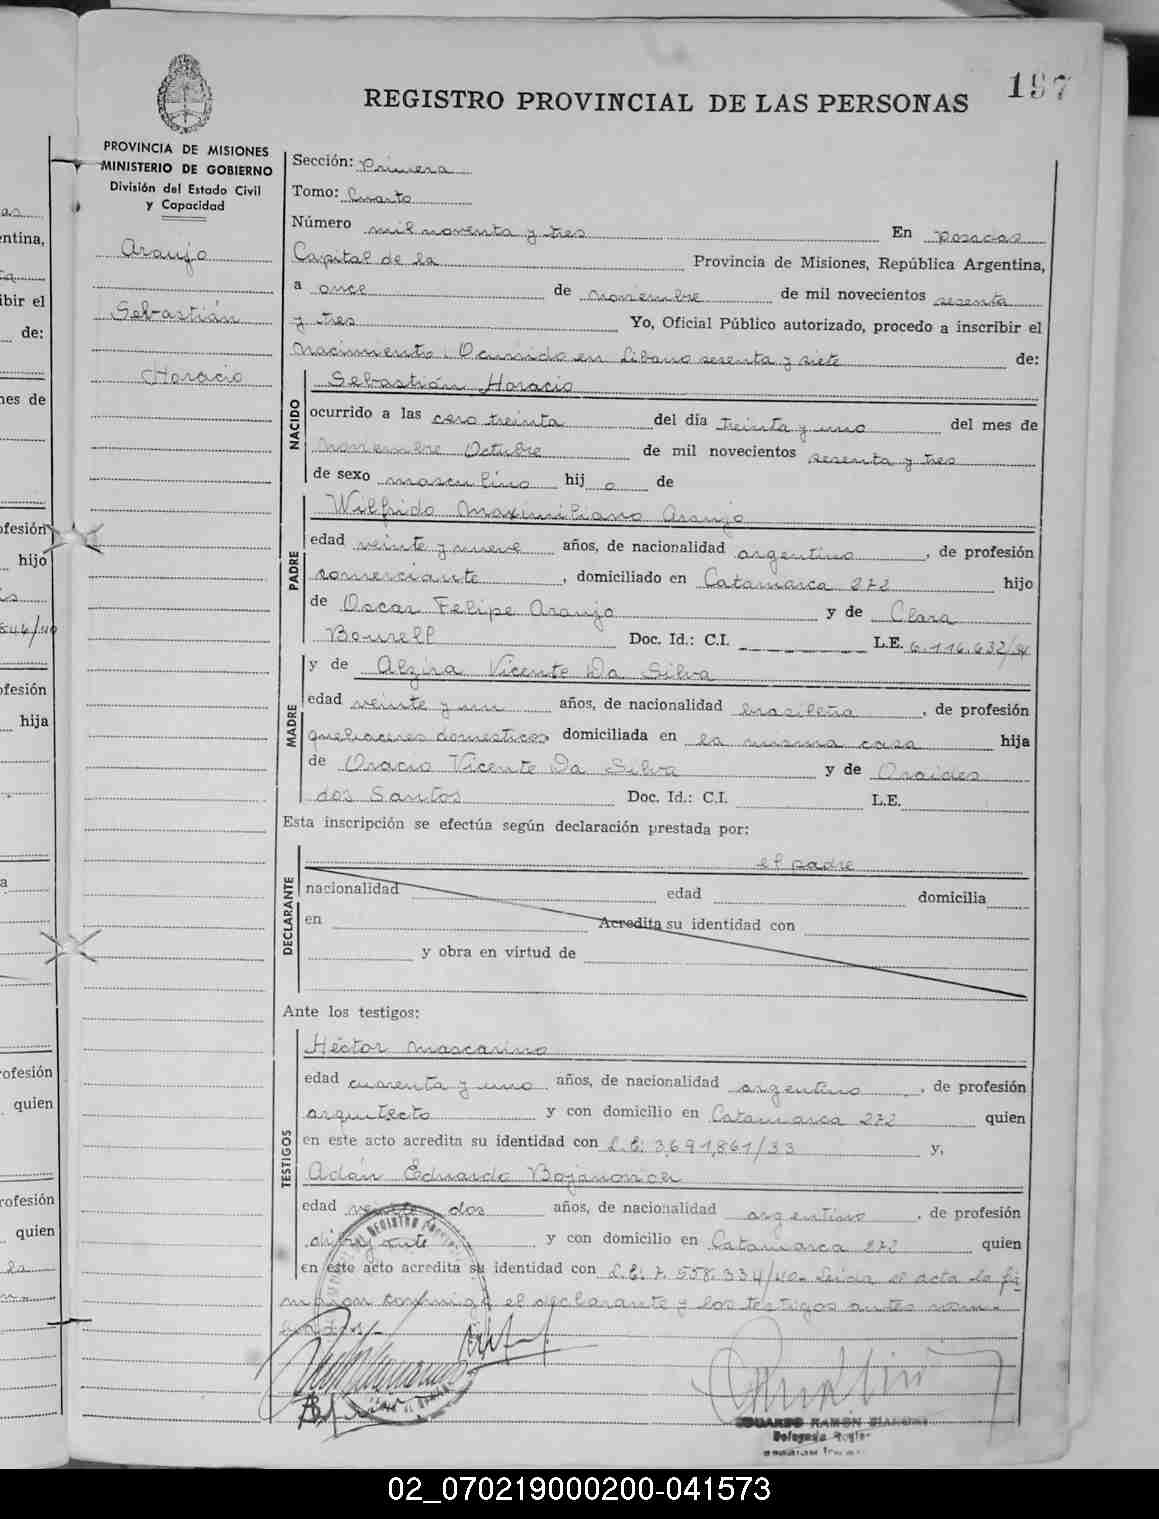 197
REGISTRO PROVINCIAL DE LAS PERSONAS
PROVINCIA DE MISIONES
MINISTERIO DE GOBIERNO
División del Estado Civil
y Capacidad
Araujo
Sebastián
Horacio
Sección: Primera
Tomo: Cuarto
Número mil noventa y tres En Posadas
Capital de la Provincia de Misiones, República Argentina,
a once de noviembre de mil novecientos sesenta
y tres Yo, Oficial Público autorizado, procedo a inscribir el
Nacimiento: Ocurrido en Libano sesenta y siete de:
NACIDO
Sebastián Horacio
ocurrido a las cero treinta del día treinta y uno del mes de
noviembre Octubre de mil novecientos sesenta y tres
de sexo masculino hijo de
PADRE
Wilfrido Maximiliano Araujo
edad veinte y nueve años, de nacionalidad argentino, de profesión
comerciante, domiciliado en Catamarca 272 hijo
de Oscar Felipe Araujo y de Clara
Bourell Doc. Id.: C.I. L.E. 6.116.632/
MADRE
y de Alzira Vicente Da Silva
edad veinte y un años, de nacionalidad brasileña, de profesión
quehaceres domesticos domiciliada en la misma casa hija
de Oracio Vicente Da Silva y de Oraides
dos Santos Doc. Id.: C.I. L.E.
Esta inscripción se efectúa según declaración prestada por:
DECLARANTE
el padre
nacionalidad edad domicilia
en Acredita su identidad con
y obra en virtud de
Ante los testigos:
TESTIGOS
Héctor Mascarino
edad cuarenta y uno años, de nacionalidad argentino, de profesión
arquitecto y con domicilio en Catamarca 272 quien
en este acto acredita su identidad con L.E: 3,691,861/33 y,
Adán Eduardo Bojanovich
edad veinte dos años, de nacionalidad argentino, de profesión
dibujante y con domicilio en Catamarca 272 quien
en este acto acredita su identidad con L.E: 7.558.334/40. Leida el acta la fir-
maron conmigo el declarante y los testigos antes nom-
brados.-
EDUARDO RAMÓN
02_070219000200-041573